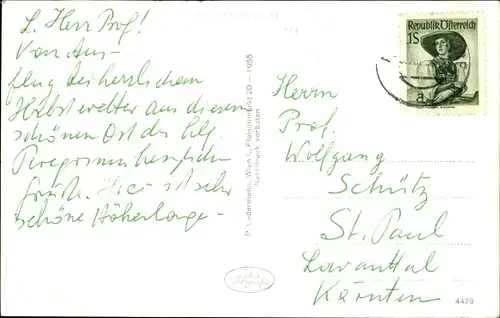 L. Herr Prof!
Von Aus-
flug bei herrlichem
Herbstwetter aus diesem
schönen Ort des hlg.
Peregrinus herzlichen
Gruß. Hier ist sehr
schöne Höhenlage -
P. Ledermann, Wien I., Fleischmarkt 20 - 1955
Nachdruck verboten
Republik Österreich
1S
Herrn
Prof.
Wolfgang
Schütz
St. Paul
Lavanttal
Kärnten
4479